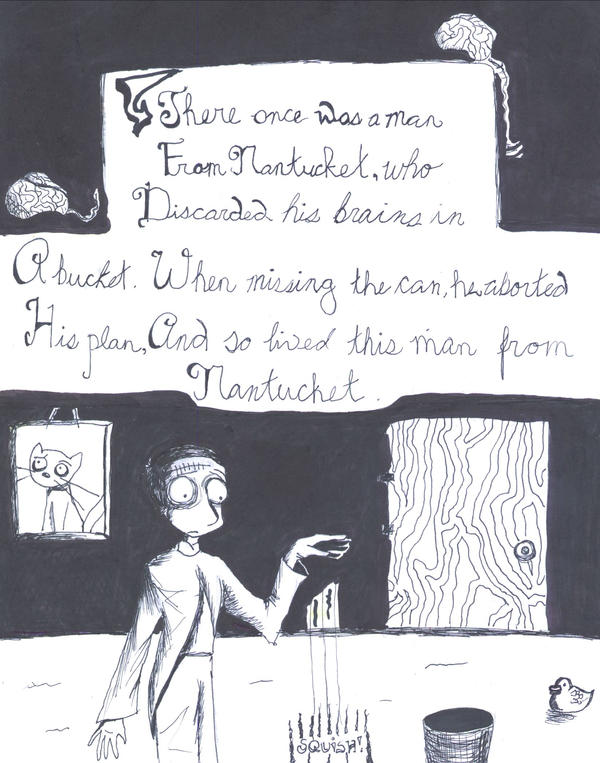 There once was a man
From Nantucket, who
Discarded his brains in
A bucket. When missing the can, he aborted
His plan, And so lived this man from
Nantucket.
SQUISH!